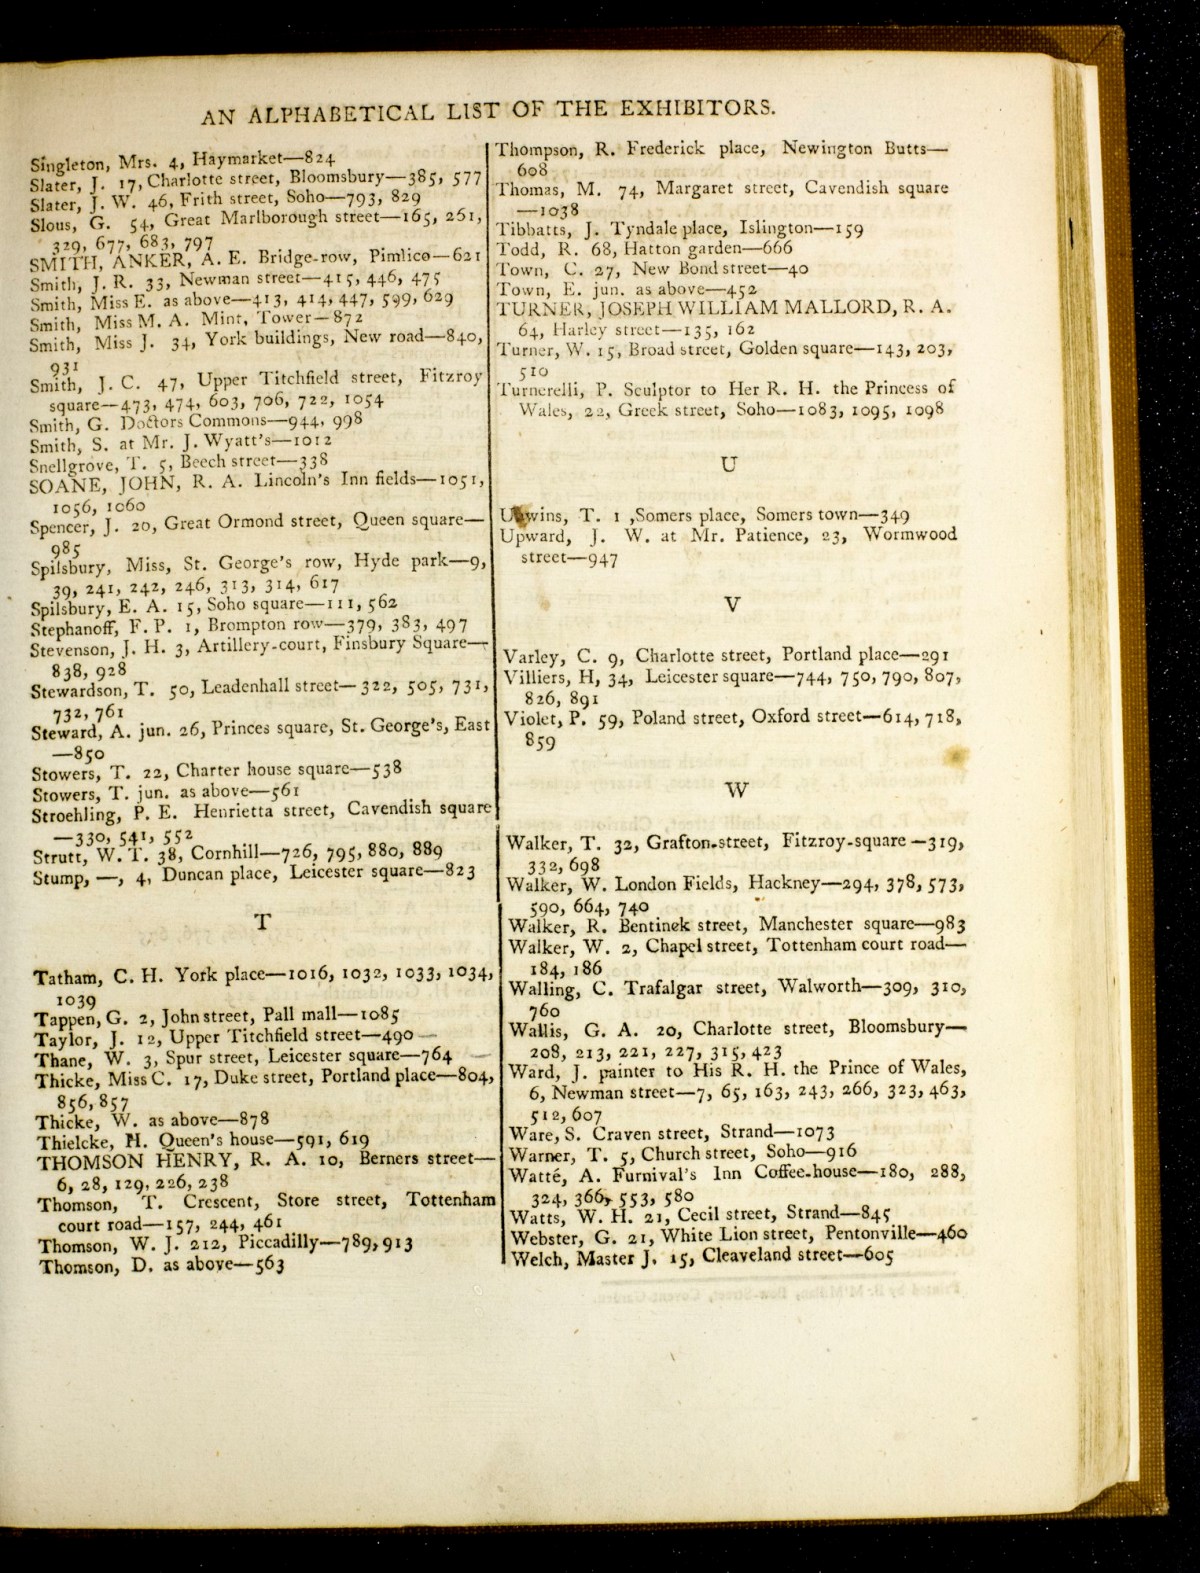 AN ALPHABETICAL LIST OF THE EXHIBITORS.
Singleton, Mrs. 4, Haymarket—824
Slater, J. 17, Charlotte street, Bloomsbury—385, 577
Slater, J. W. 46, Frith street, Soho—793, 829
Slous, G. 54, Great Marlborough street—165, 261,
329, 677, 683, 797
SMITH, ANKER, A. E. Bridge-row, Pimlico—621
Smith, J. R. 33, Newman street—415, 446, 475
Smith, Miss E. as above—413, 414, 447, 599, 629
Smith, Miss M. A. Mint, Tower—872
Smith, Miss J. 34, York buildings, New road—840,
931
Smith, J. C. 47, Upper Titchfield street, Fitzroy
square—473, 474, 603, 706, 722, 1054
Smith, G. Doctors Commons—944, 998
Smith, S. at Mr. J. Wyatt's—1012
Snellgrove, T. 5, Beech street—338
SOANE, JOHN, R. A. Lincoln's Inn fields—1051,
1056, 1060
Spencer, J. 20, Great Ormond street, Queen square—
985
Spilsbury, Miss, St. George's row, Hyde park—9,
39, 241, 242, 246, 313, 314, 617
Spilsbury, E. A. 15, Soho square—111, 562
Stephanoff, F. P. 1, Brompton row—379, 383, 497
Stevenson, J. H. 3, Artillery-court, Finsbury Square—
838, 928
Stewardson, T. 50, Leadenhall street—322, 505, 731,
732, 761
Steward, A. jun. 26, Princes square, St. George's, East
—850
Stowers, T. 22, Charter house square—538
Stowers, T. jun. as above—561
Stroehling, P. E. Henrietta street, Cavendish square
—330, 541, 552
Strutt, W. T. 38, Cornhill—726, 795, 880, 889
Stump, —, 4, Duncan place, Leicester square—823
T
Tatham, C. H. York place—1016, 1032, 1033, 1034,
1039
Tappen, G. 2, John street, Pall mall—1085
Taylor, J. 12, Upper Titchfield street—490
Thane, W. 3, Spur street, Leicester square—764
Thicke, Miss C. 17, Duke street, Portland place—804,
856, 857
Thicke, W. as above—878
Thielcke, H. Queen's house—591, 619
THOMSON HENRY, R. A. 10, Berners street—
6, 28, 129, 226, 238
Thomson, T. Crescent, Store street, Tottenham
court road—157, 244, 461
Thomson, W. J. 212, Piccadilly—789, 913
Thomson, D. as above—563
Thompson, R. Frederick place, Newington Butts—
608
Thomas, M. 74, Margaret street, Cavendish square
—1038
Tibbatts, J. Tyndale place, Islington—159
Todd, R. 68, Hatton garden—666
Town, C. 27, New Bond street—40
Town, E. jun. as above—452
TURNER, JOSEPH WILLIAM MALLORD, R. A.
64, Harley street—135, 162
Turner, W. 15, Broad street, Golden square—143, 203,
510
Turnerelli, P. Sculptor to Her R. H. the Princess of
Wales, 22, Greek street, Soho—1083, 1095, 1098
U
Uwins, T. 1 ,Somers place, Somers town—349
Upward, J. W. at Mr. Patience, 23, Wormwood
street—947
V
Varley, C. 9, Charlotte street, Portland place—291
Villiers, H, 34, Leicester square—744, 750, 790, 807,
826, 891
Violet, P. 59, Poland street, Oxford street—614, 718,
859
W
Walker, T. 32, Grafton-street, Fitzroy-square—319,
332, 698
Walker, W. London Fields, Hackney—294, 378, 573,
590, 664, 740
Walker, R. Bentinek street, Manchester square—983
Walker, W. 2, Chapel street, Tottenham court road—
184, 186
Walling, C. Trafalgar street, Walworth—309, 310,
760
Wallis, G. A. 20, Charlotte street, Bloomsbury—
208, 213, 221, 227, 315, 423
Ward, J. painter to His R. H. the Prince of Wales,
6, Newman street—7, 65, 163, 243, 266, 323, 463,
512, 607
Ware, S. Craven street, Strand—1073
Warner, T. 5, Church street, Soho—916
Watté, A. Furnival's Inn Coffee-house—180, 288,
324, 366, 553, 580
Watts, W. H. 21, Cecil street, Strand—845
Webster, G. 21, White Lion street, Pentonville—460
Welch, Master J. 15, Cleaveland street—605